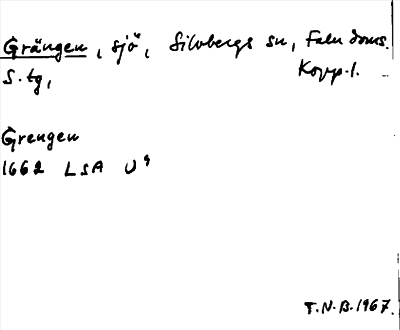 Grängen, sjö, Silvbergs sn, Falu doms.
S. tg, Kopp. l.
Grengen
1662 LSA U9
T.N.B. 1967.